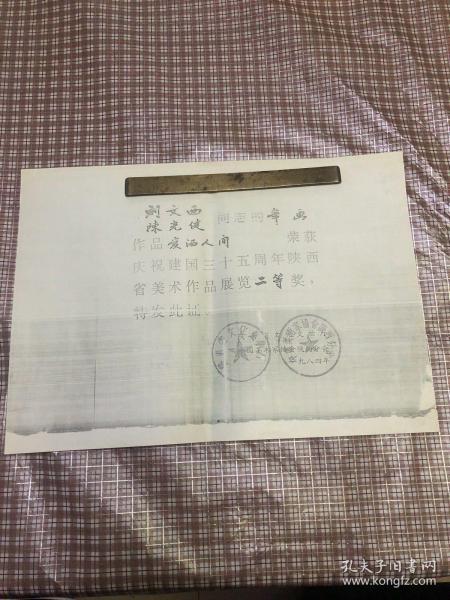 刘文西
陈光健 同志的年画
作品爱洒人间 荣获
庆祝建国三十五周年陕西
省美术作品展览二等奖，
特发此证。
一九八四年
孔夫子旧书网
www.kongfz.com